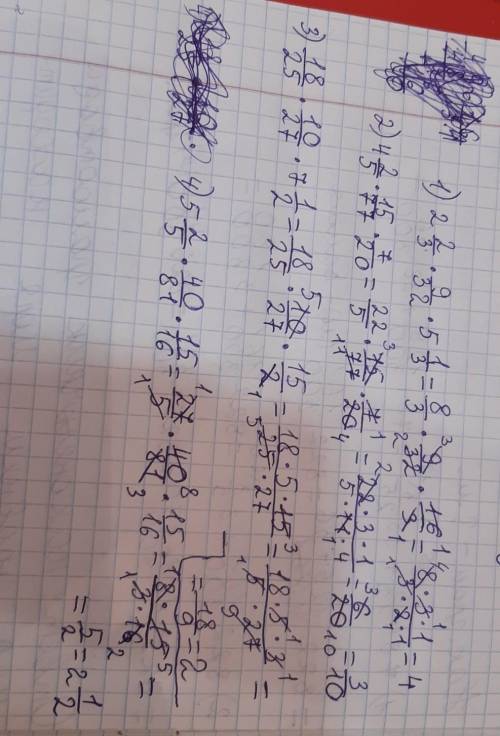 1) 2 2/3 · 9/32 · 5 1/3 = 8/3 · 9/32 · 16/3 = 8·3·1/3·2·1 = 4
2) 4 2/5 · 15/77 · 7/20 = 22/5 · 15/77 · 7/20 = 22·3·1/5·11·4 = 6/20 = 3/10
3) 18/25 · 10/27 · 7 1/2 = 18/25 · 10/27 · 15/2 = 18·5·15/25·27 = 18·5·3/5·27 =
= 18/9 = 2
4) 5 2/5 · 40/81 · 15/16 = 27/5 · 40/81 · 15/16 = 8·15/3·16 =
= 5/2 = 2 1/2